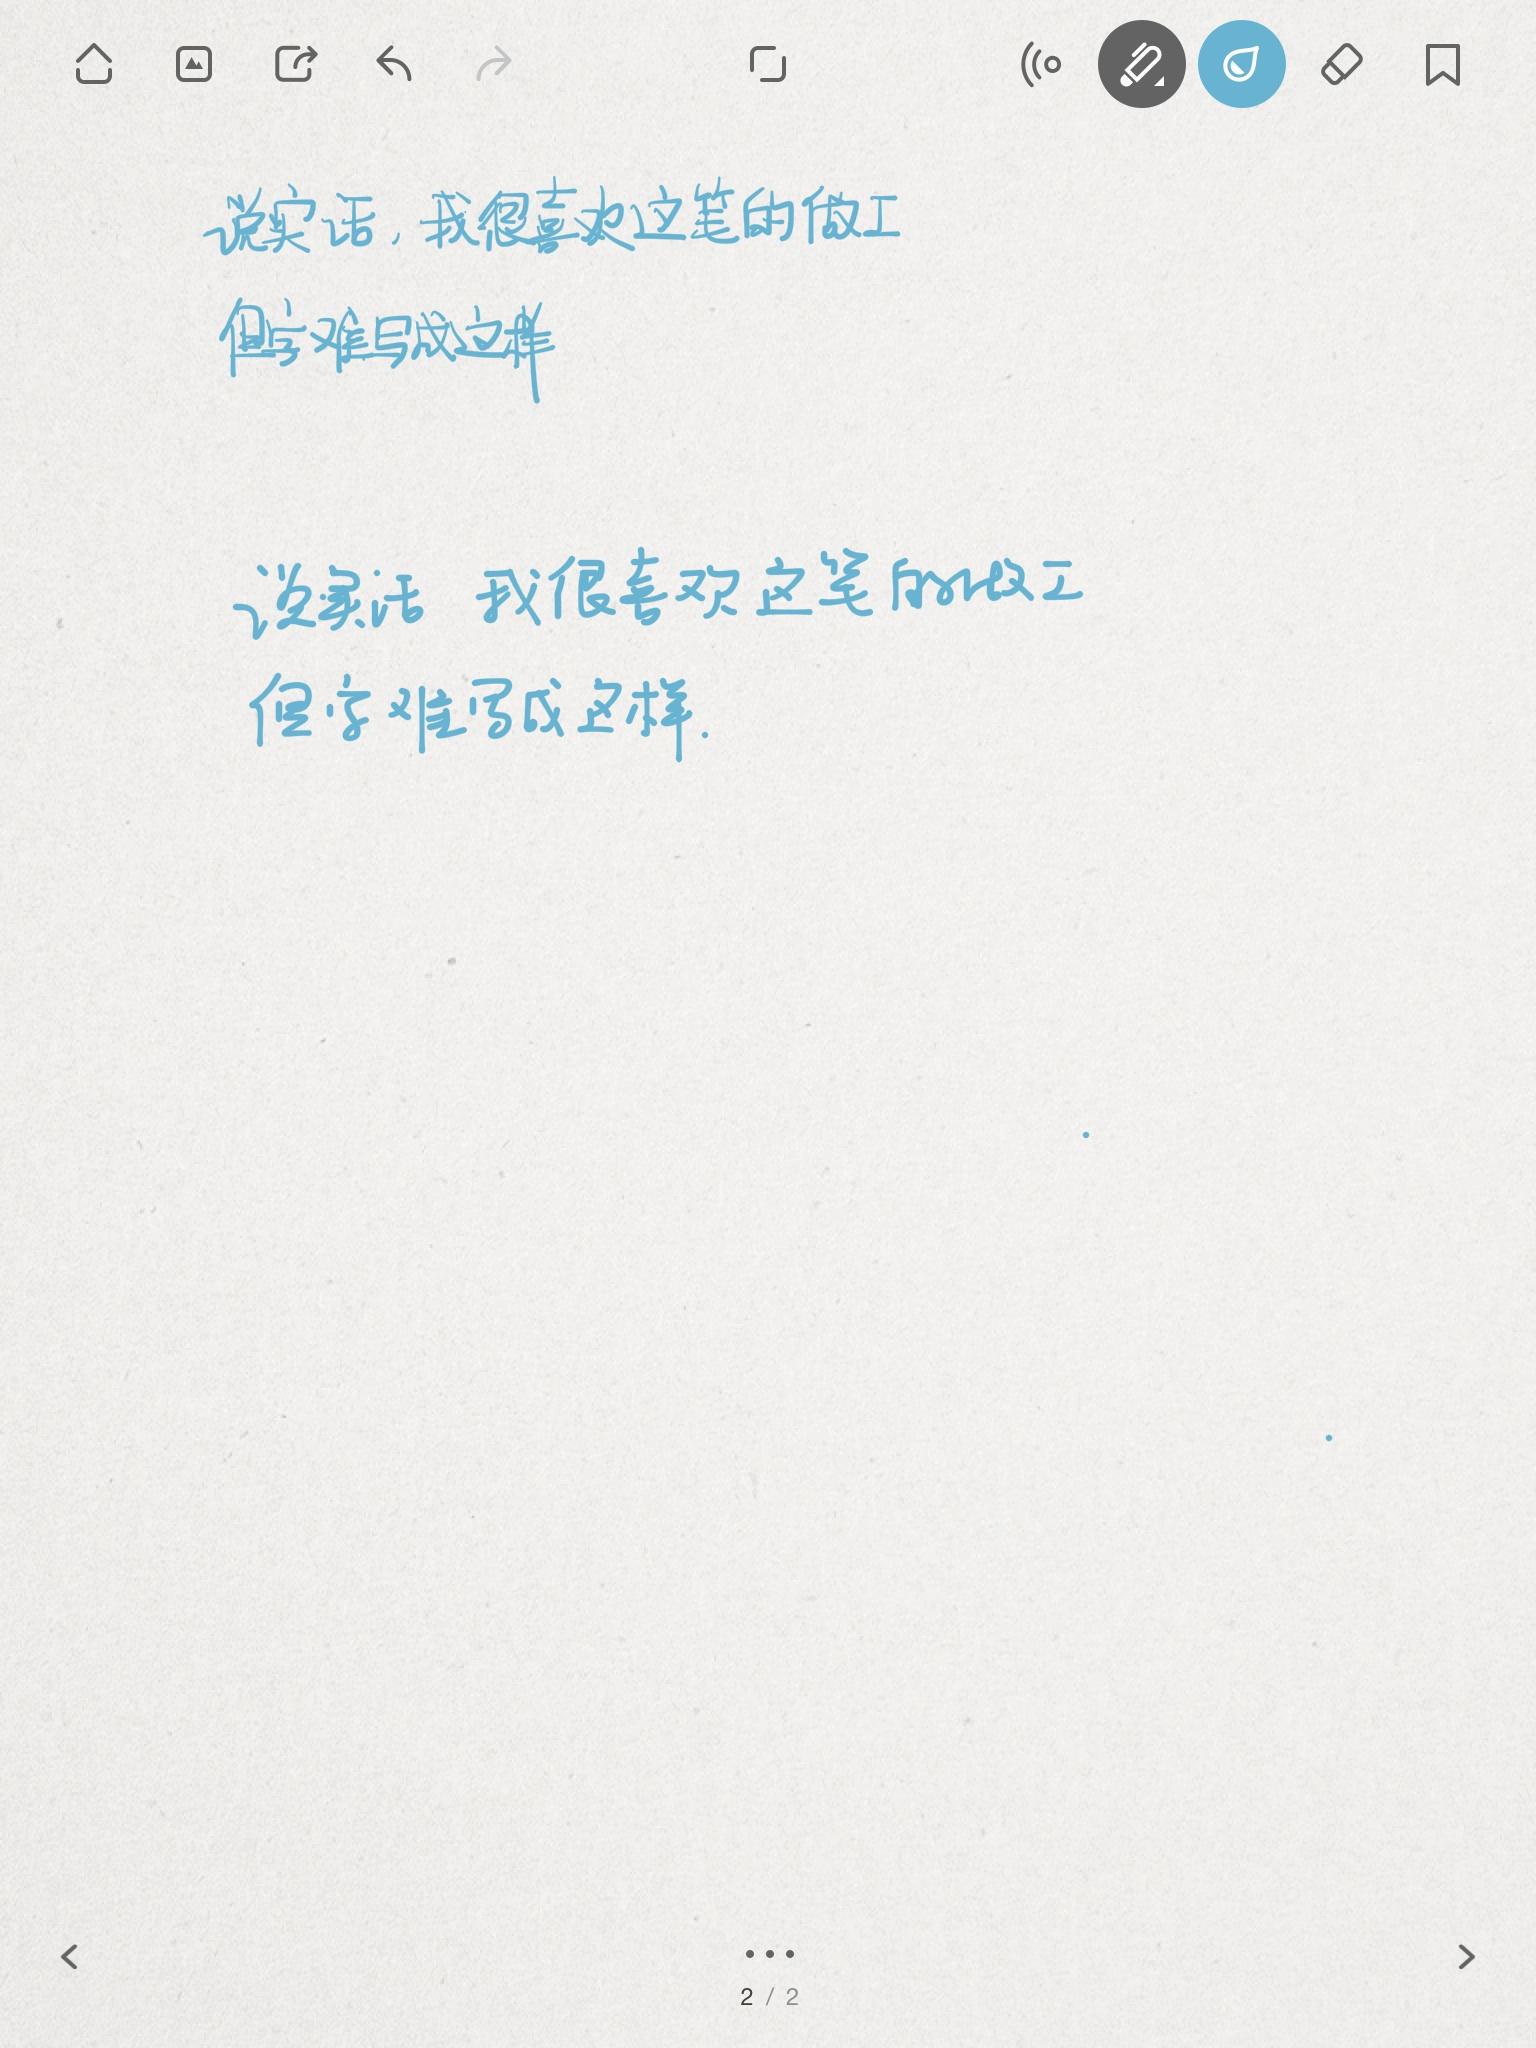 说实话，我很喜欢这笔的做工
但字难写成这样
说实话 我很喜欢这笔的做工
但字难写成这样.
2 / 2